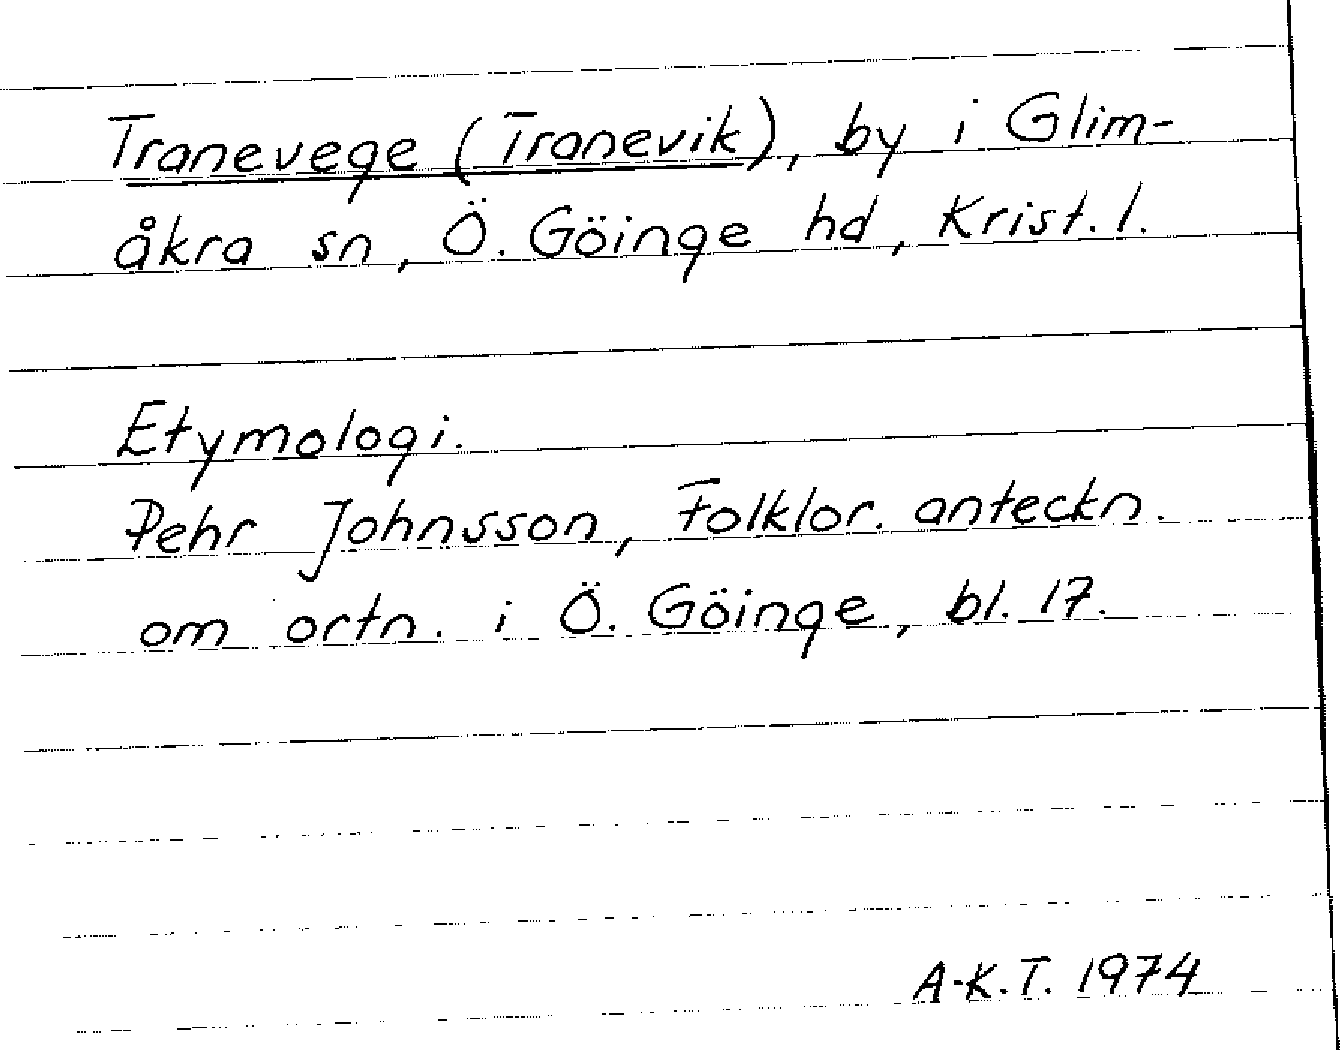 Tranevege (Tranevik), by i Glim-
åkra sn, Ö. Göinge hd, Krist. l.
Etymologi.
Pehr Johnsson, Folklor. anteckn.
om ortn. i Ö. Göinge, bl. 17.
A-K.T. 1974